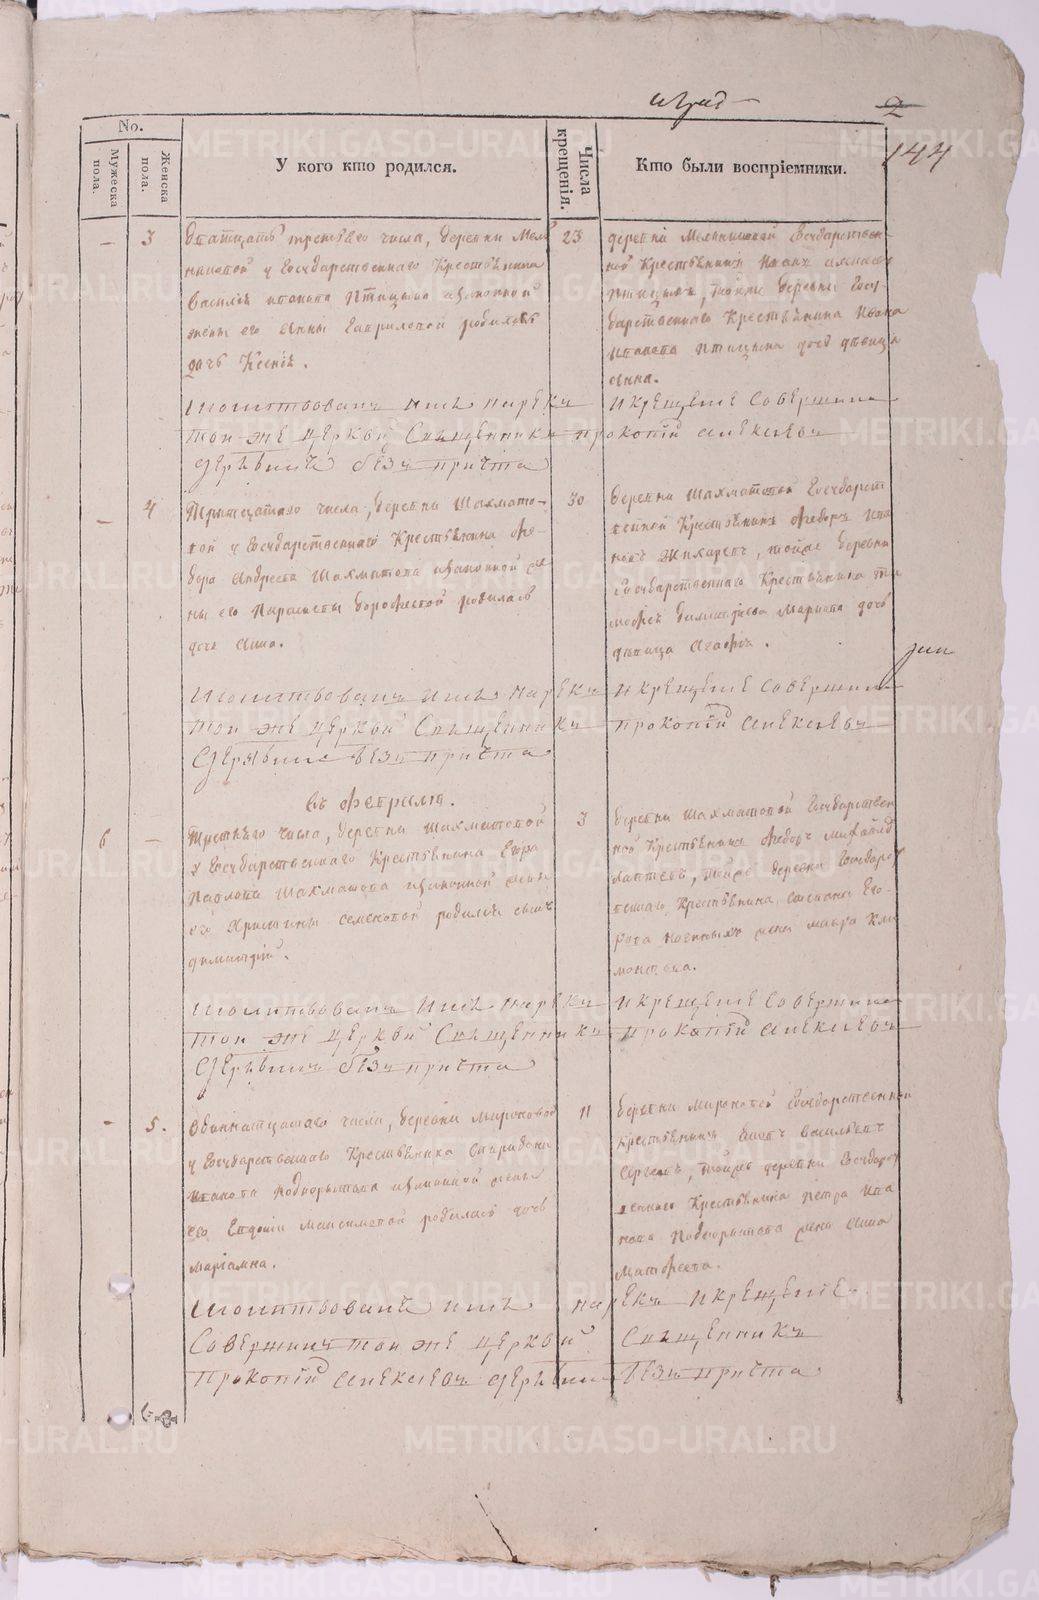 2
144
No.
Мужеска пола.
Женска пола.
У кого кто родился.
Числа крещенія.
Кто были воспріемники.
3
23
Дватцать третьяго числа, деревни Мель
никовой у Государственнаго Крестьянина
Василья Иванова Птицына законной
жены его Анны Гавриловой родилась
дочь Ксенія.
деревни Мельниковой Государствен-
ной Крестьянинъ Иванъ
Птицынъ, тойже деревни Госу-
дарственнаго Крестьянина Ивана
Иванова Птицына дочь девица
Анна.
Молитвовалъ имя нарекъ и крещение совершилъ
той же церкви священникъ Прокопій Алексеевъ
Дерябинъ безъ причта
4
30
Тритцатаго числа, деревни Шахмато-
вой у Государственнаго Крестьянина Фе-
дора Андреева Шахматова законной же-
ны его Парасковы Дорофеевой родилась
дочь Анна.
деревни Шахматовой Государст
венной Крестьянинъ Федоръ Ива
новъ Жихаревъ, тойже деревни
Государственнаго Крестьянина Ти
мофея Маркова дочь
девица Агафья.
Молитвовалъ имя нарекъ и крещение совершилъ
той же церкви священникъ Прокопій Алексеевъ
Дерябинъ безъ причта
въ Феврале.
6
3
Третьяго числа, деревни Шахматовой
у Государственнаго Крестьянина Егора
Павлова Шахматова законной жены
его Христины Семеновой родился сынъ
Димитрій.
деревни Шахматовой Государствен
ной Крестьянинъ Федоръ Михайлов
Лаптевъ, тойже деревни Государст
веннаго Крестьянина Степана Его-
рова жена Мавра Кли
монтова.
Молитвовалъ имя нарекъ и крещение совершилъ
той же церкви священникъ Прокопій Алексеевъ
Дерябинъ безъ причта
5.
11
Одиннатцатаго числа, деревни Мироновой
у Государственнаго Крестьянина Спиридона
Иванова Подкорытова законной жены
его Евдокіи Максимовой родилась дочь
Маріамна.
деревни Мироновой Государственной
Крестьянинъ Васильевъ
Сергеевъ, тойже деревни Государст
веннаго Крестьянина Петра Ива
нова Подкорытова жена Анна
Матфеева.
Молитвовалъ имя нарекъ и крещение
совершилъ той же церкви священникъ
Прокопій Алексеевъ Дерябинъ безъ причта
METRIKI.GASO-URAL.RU